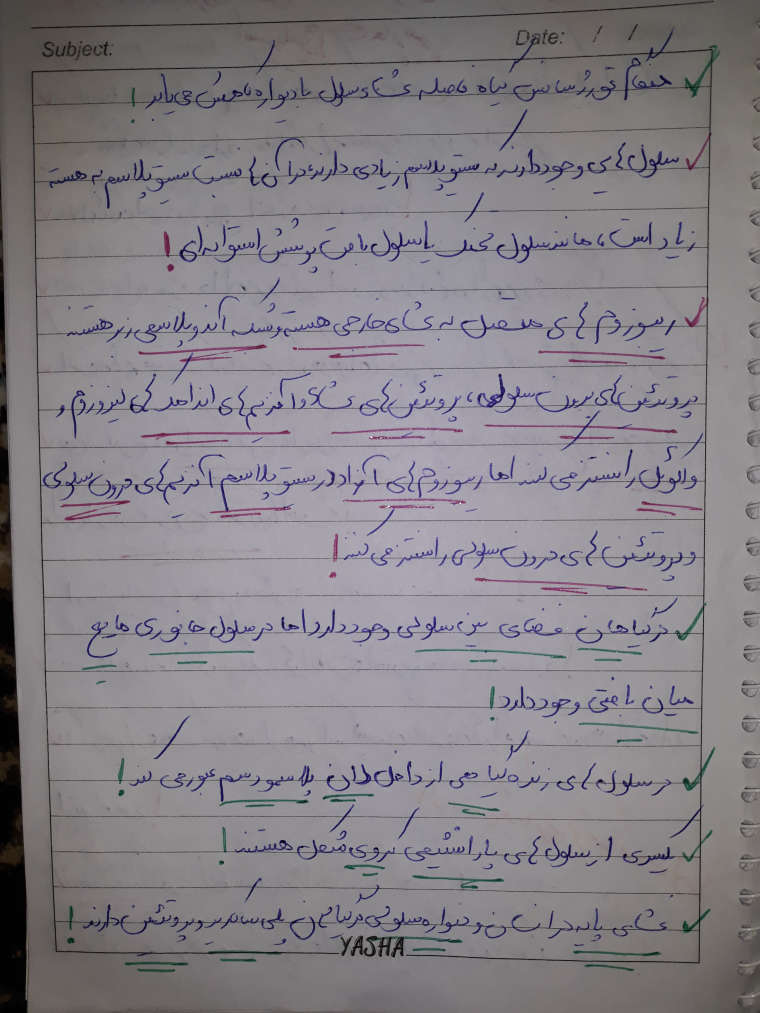 Subject:
Date: / /
هنگام تورژسانس گیاه فاصله غشاء سلول با دیواره کاهش می‌یابد!
سلول هایی وجود دارند که سیتوپلاسم زیادی دارند، در آن ها نسبت سیتوپلاسم به هسته
زیاد است، مانند سلول تخمک یا سلول بافت پوششی استوانه ای!
ریبوزوم های متصل به غشای خارجی هسته و شبکه آندوپلاسمی زبر هستند
پروتئین های برون سلولی، پروتئین های غشاء و آنزیم های اندامک های لیزوزوم و
واکوئل را سنتز می کنند اما ریبوزوم های آزاد در سیتوپلاسم آنزیم های درون سلولی
و پروتئین های درون سلولی را سنتز می کنند!
در گیاهان فضای بین سلولی وجود دارد اما در سلول جانوری مایع
میان بافتی وجود دارد!
در سلول های زنده گیاهی از داخل لان پلاسمودسم عبور می کند!
یکسری از سلول های پارانشیمی کروی شکل هستند!
غشای پایه در انسان و دیواره سلولی در گیاهان پلی ساکارید و پروتئین دارند!
YASHA